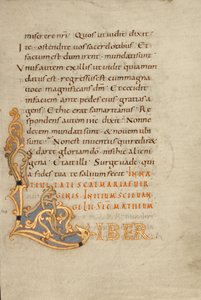 miserere nri. Quos ut uidit dixit
Ite ostendite uos sacerdotibus. Et
factum est dum irent mundati sunt
Unus autem ex illis ut uidit quia mun
datus est regressus est cum magna
uoce magnificans dm. Et cecidit
in faciem ante pedes eius gratias a
gens. Et hic erat samaritanus. Re
spondens autem ihs dixit. Nonne
decem mundati sunt & nouem ubi
sunt. Non est inuentus qui redir&
& dar& gloriam do nisi hic alieni
gena. Et ait illi. Surge uade qui
a fides tua te saluum fecit
IN NA
TIUITATE SCAE MARIAE UIR
GINIS. INITIUM SCI EUAN
GELII SEC MATHEUM
LIBER